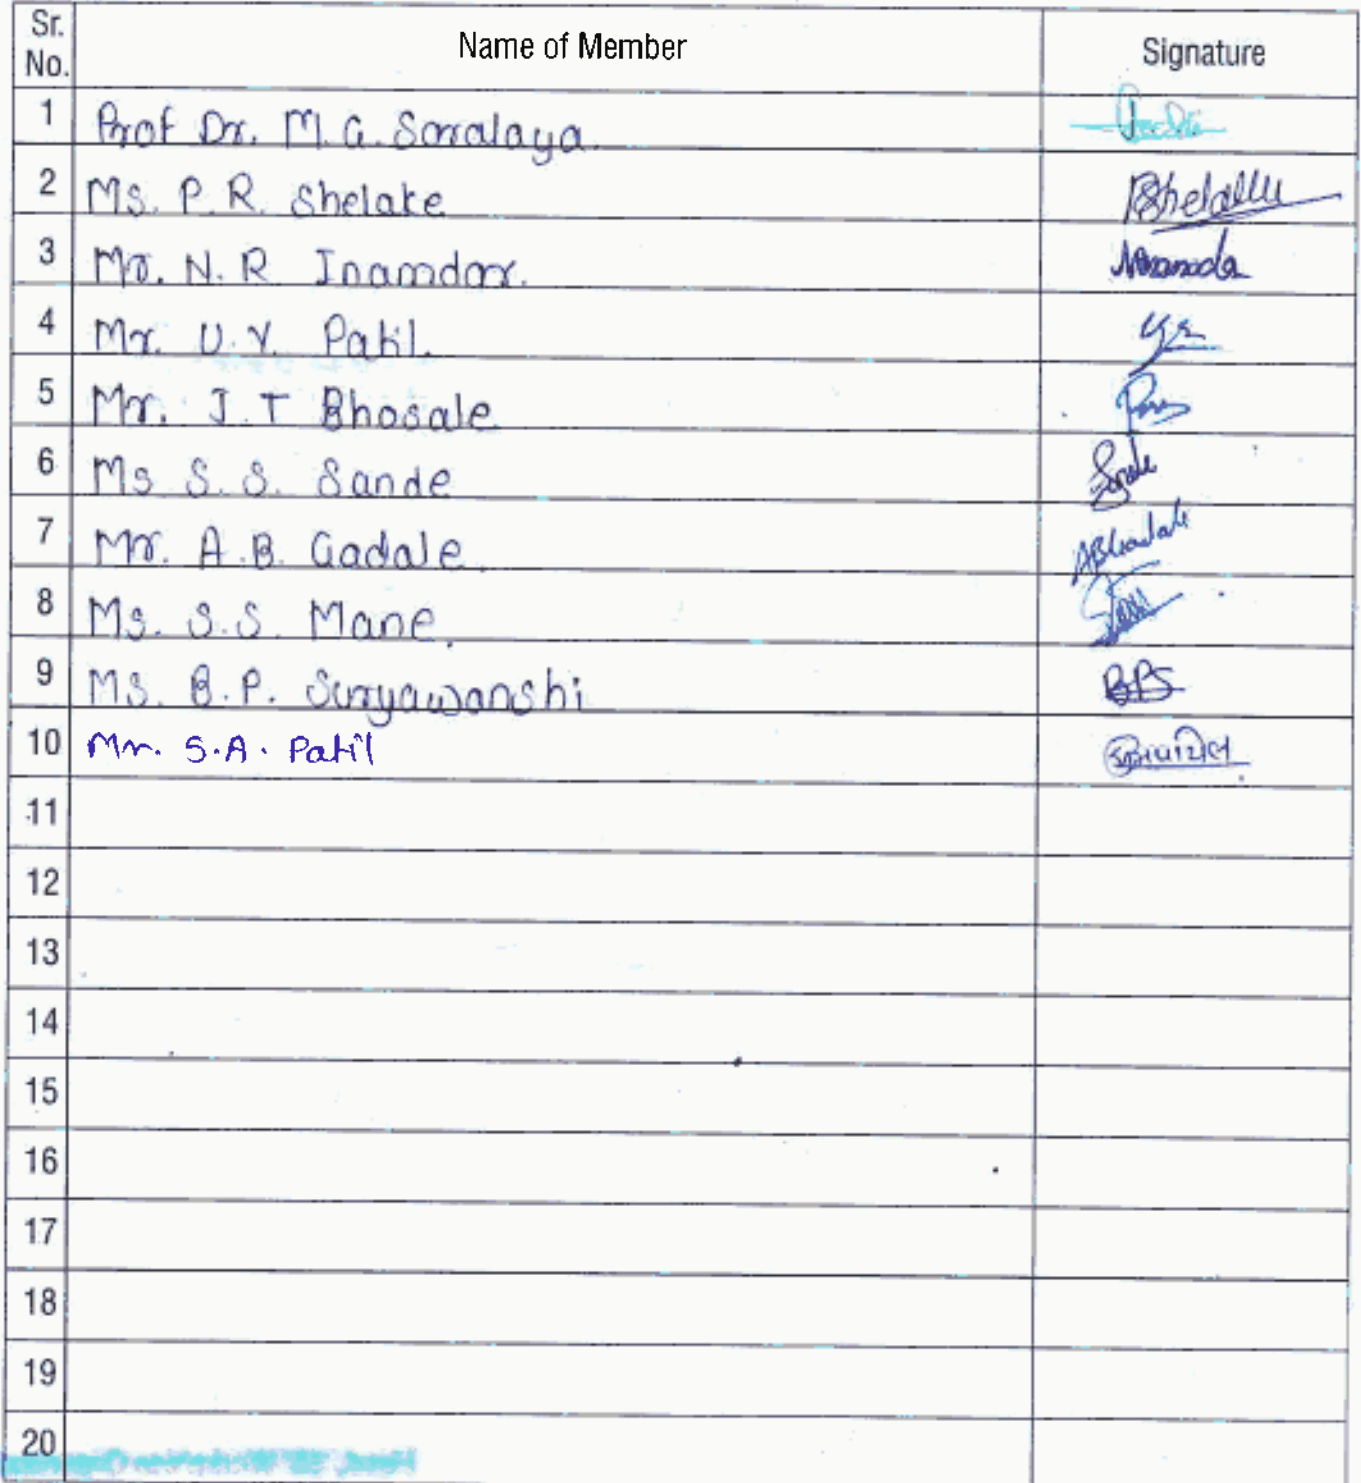 Sr. No. Name of Member Signature
1 Prof Dr. M.G. Sarralaya.
2 Ms. P.R. Shelake Shelake
3 Mr. N.R Inamdar.
4 Mr. U.V. Patil.
5 Mr. J.T Bhosale
6 Ms S.S. Sande
7 Mr. A.B. Gadale. ABGadale
8 Ms. S.S. Mane.
9 Ms. B.P. Suryawanshi BPS
10 Mr. S.A. Patil
11
12
13
14
15
16
17
18
19
20